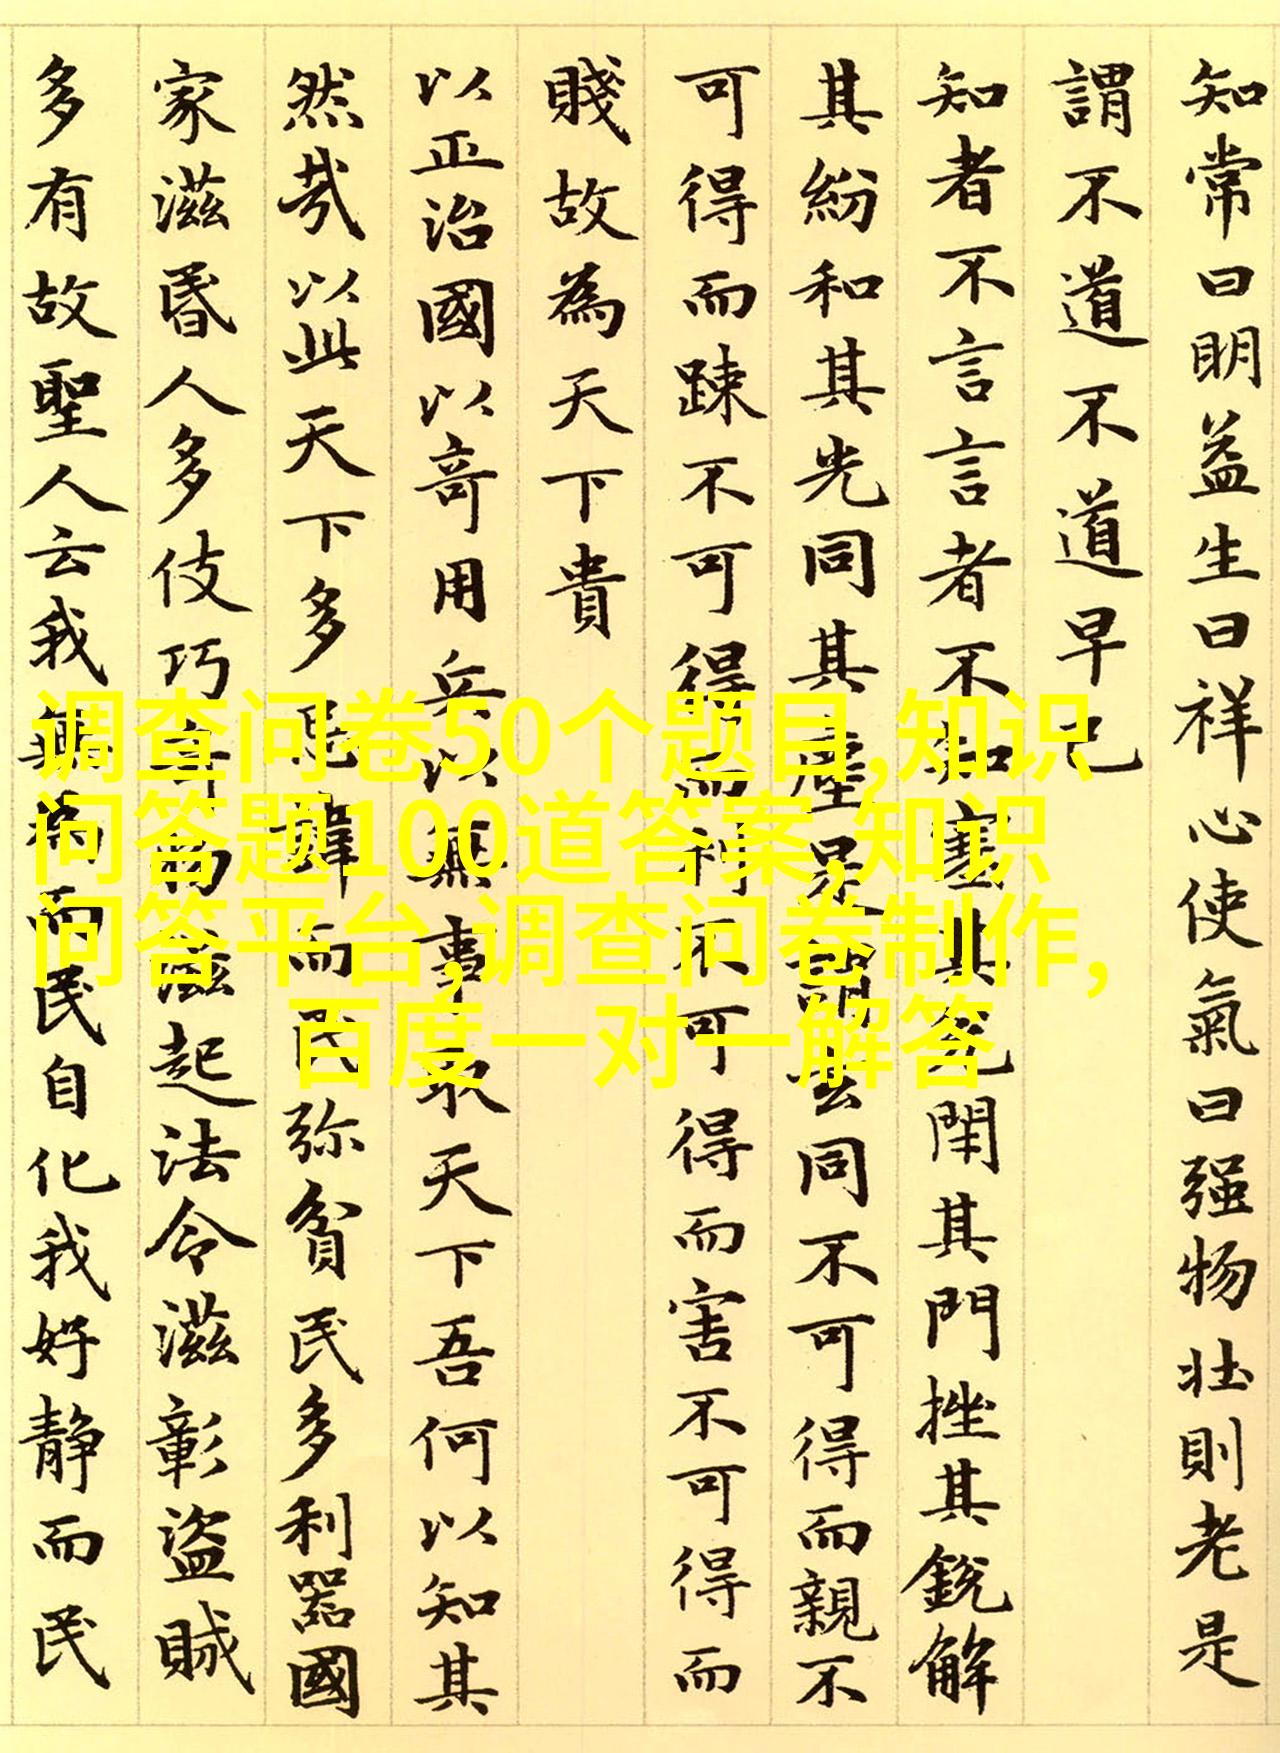 知常曰明益生曰祥心使氣曰强物壯則老是
謂不道不道早已
知者不言言者不知塞其兊閇其門挫其銳解
其紛和其光同其塵是謂玄同不可得而親不
可得而踈不可得而利不可得而害不可得而
賤故為天下貴
以正治國以竒用兵以無事取天下吾何以知其
然哉以此天下多忌諱而民弥貧民多利器國
家滋昬人多伎巧竒物滋起法令滋彰盜賊
多有故聖人云我無為而民自化我好静而民
调查问卷50个题目,知识
问答题100道答案,知识
问答平台,调查问卷制作,
百度一对一解答